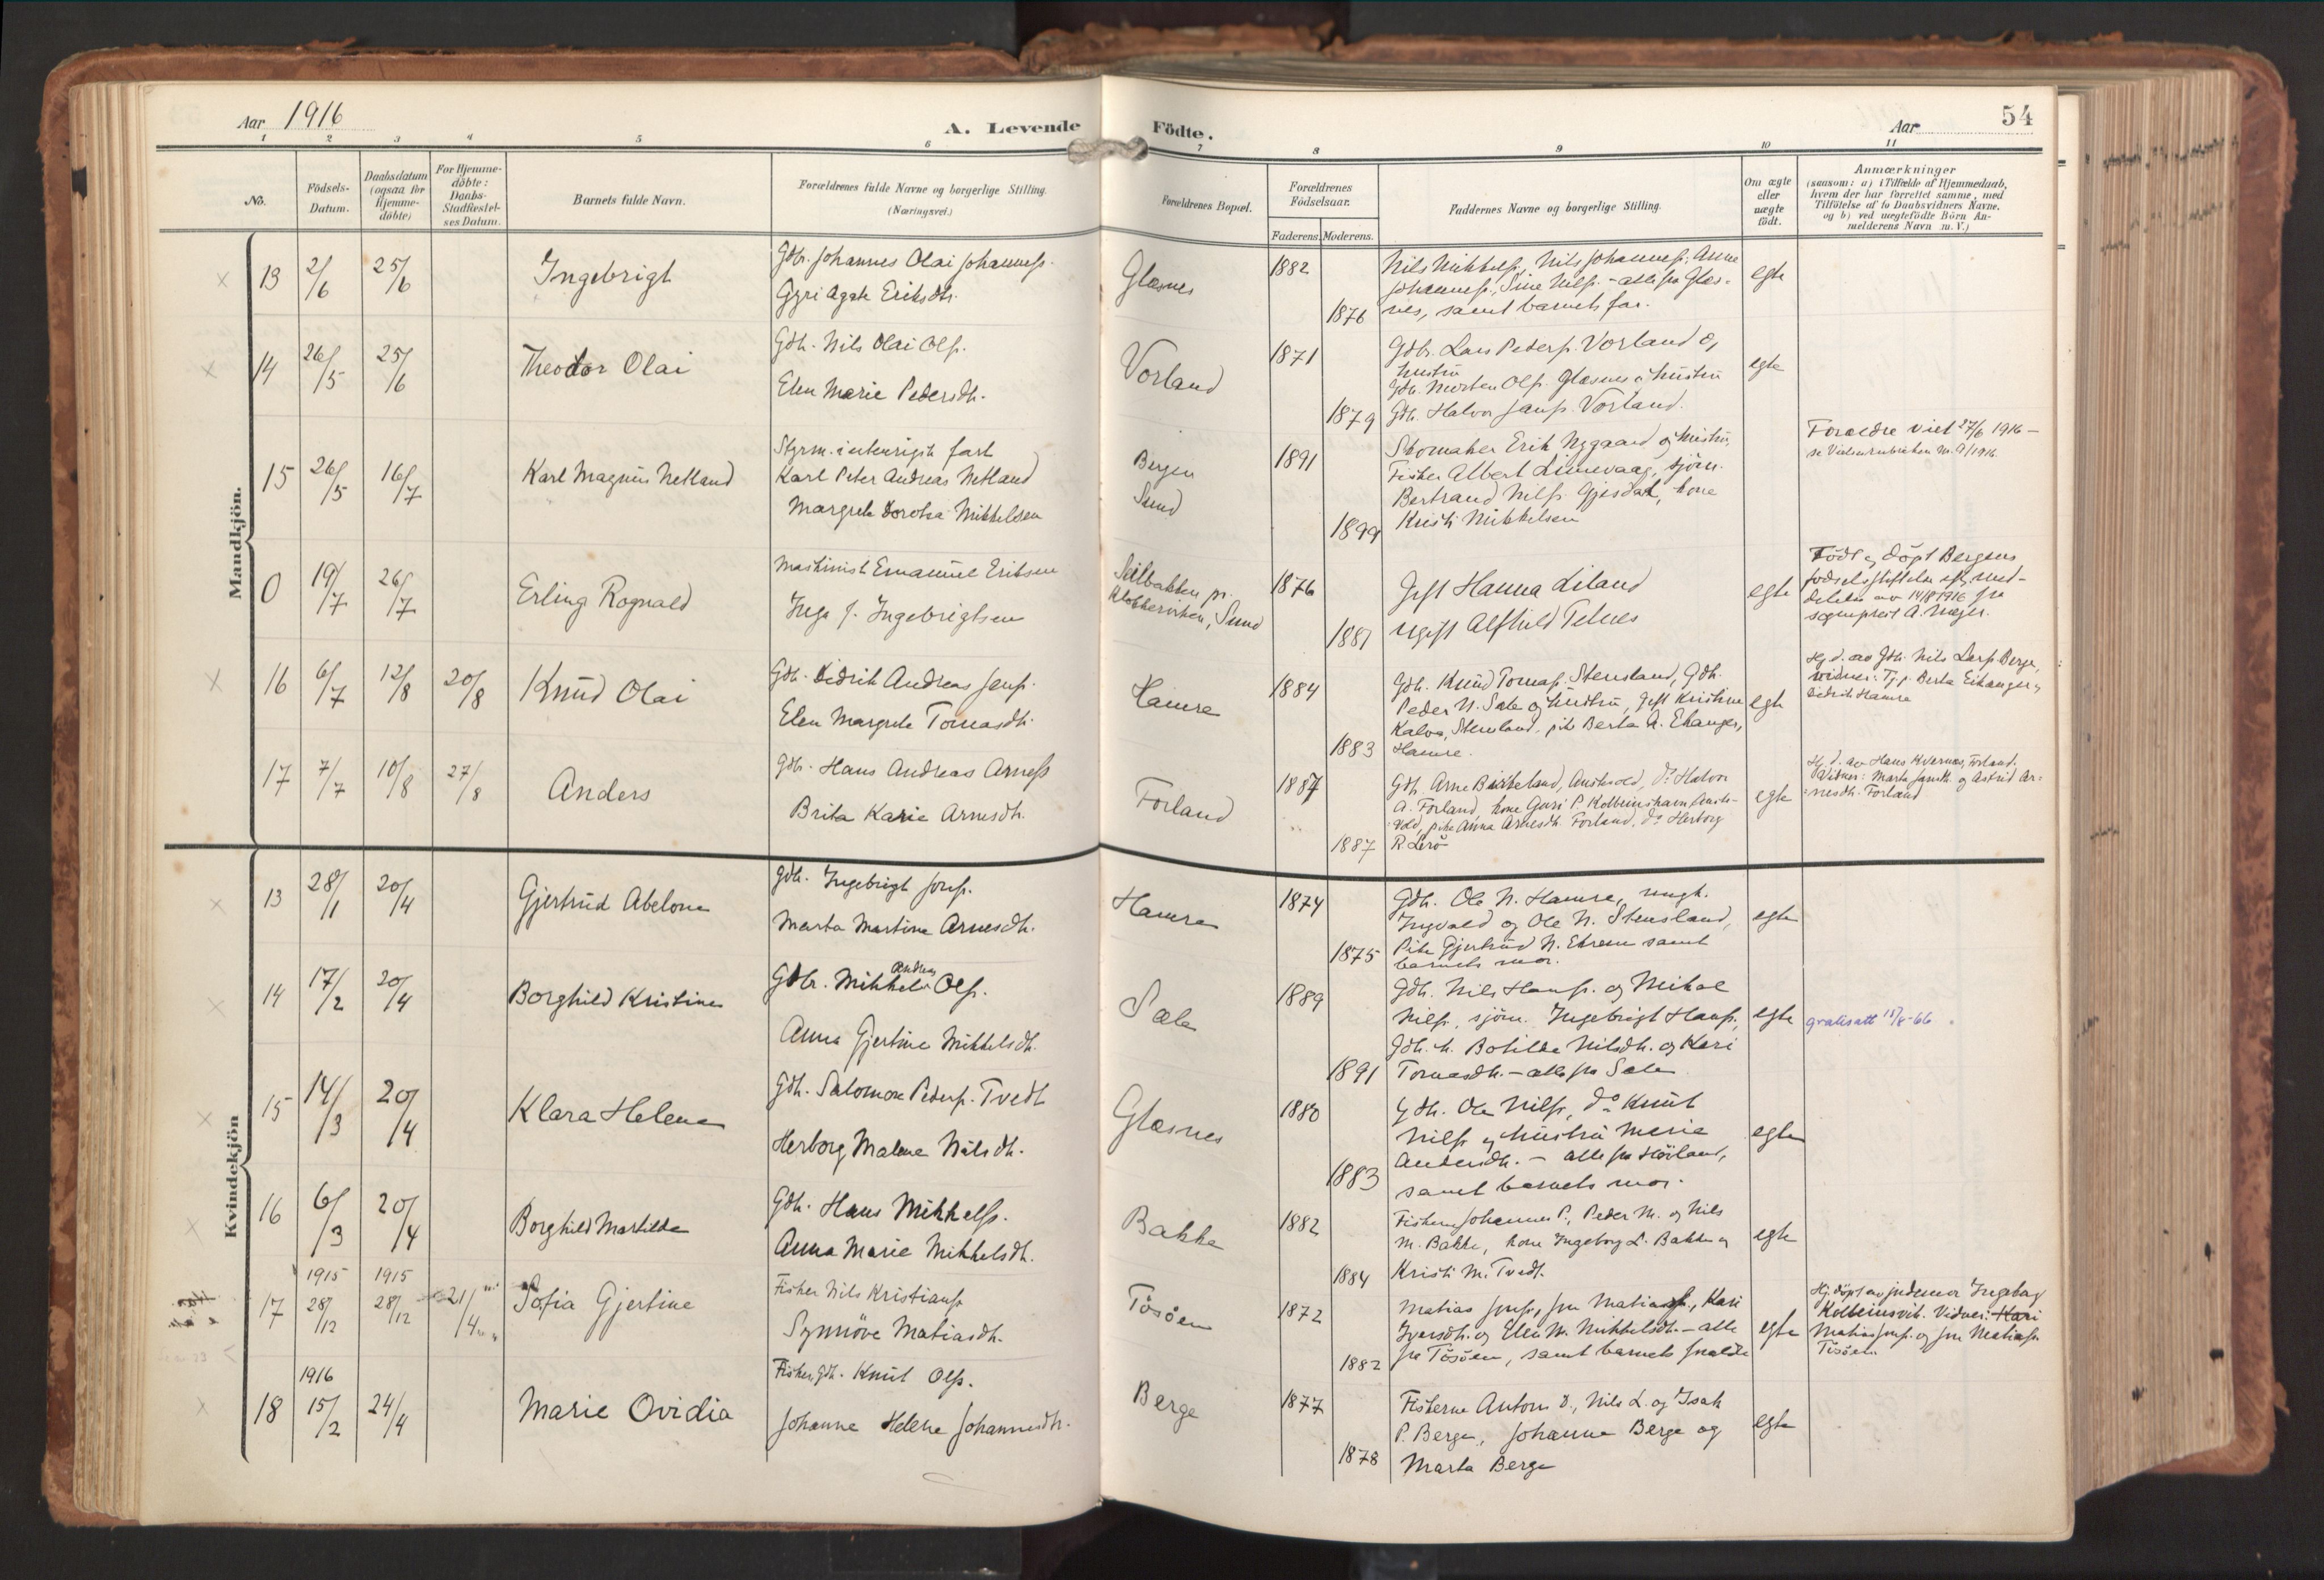 Aar 1916
A. Levende Födte.
Aar
54
1 2 3 4 5 6 7 8 9 10 11
No.
Födsels-Datum.
Daabsdatum (ogsaa for Hjemme-döbte)
For Hjemme-döbte: Daabs-Stadfæstel-ses Datum.
Barnets fulde Navn.
Forældrenes fulde Navne og borgerlige Stilling. (Næringsvei.)
Forældrenes Bopæl.
Forældrenes Födselsaar.
Faderens. Moderens.
Faddernes Navne og borgerlige Stilling.
Om ægte eller uægte födt.
Anmærkninger
(saasom: a) i Tilfælde af Hjemmedaab,
hvem der har forrettet samme, med
Tilföielse af to Daabsvidners Navne.
og b) ved uægtefödte Börn An-
melderens Navn m. V.)
Mandkjön.
13 2/6 25/6 Ingebrigt
Gdbr. Johannes Olai Johanness.
Gyri Agate Eriksdtr.
Glæsnes
1882
1876
Nils Mikkels., Nils Johanness. Anne
Johanness., Sine Nilss. - alle fra Glæs-
nes, samt barnets far.
egte
14 26/5 25/6 Theodor Olai
Gdb. Nils Olai Ols.
Elen Marie Pedersdtr.
Vorland
1871
1879
Gdbr. Lars Peders. Vorland og
hustru
Gdb. Morten Ols. Glæsnes og hustru
Gdb. Halvor Jans. Vorland.
egte
15 26/5 16/7 Karl Magnus Netland
Styrm. i utenrigsk fart
Karl Peter Andreas Netland
Margrete Dorotea Mikkelsen
Bergen
Sund
1891
1899
Skomaker Erik Nygaard og hustru,
Fisker Albert Linnevaag, sjöm.
Bertrand Nilss. Gjesdal, kone
Kristi Mikkelsen
Foreldre viet 27/6 1916 -
0 19/7 26/7 Erling Rognald
Maskinist Emanuel Eriksen
Inga J. Ingebrigtsen
Klokkerviken, Sund
1876
1881
Gift Hanna Liland
ugift Alfhild Telnes
egte
Födt og döpt Bergens
födselsstiftelse eft. med-
delelse av 14/8 1916 fra
sogneprest A. Meyer.
16 6/7 12/8 20/8 Knud Olai
Gdb. Didrik Andreas Jens.
Elen Margrete Tomasdtr.
Hamre
1884
1883
Gdb. Knud Tomas. Stensland, Gdb.
Peder N. Sæle og hustru, gift Kristine
Kalve, Stensland, pike Berta A. Ekanger,
Hamre.
egte
Hj. d. av Gdb. Nils Lars. Berge,
vidner: Tj.p. Berta Eikanger og
Didrik Hamre
17 7/7 10/8 27/8 Anders
Gdb. Hans Andreas Arness
Brita Karie Arnesdtr.
Forland
1887
1887
Gdb. Arne Birkeland, Austevold, do Halvor
A. Forland, kone Guri P. Kolbeinshavn, Auste-
vold, pike Anna Arnesdtr. Forland, do Herborg
R. Lerö
egte
Hj. d. av Hans Kvernes, Forland.
Vidner: Marta Jansdtr. og Astrid Ar-
nesdtr. Forland
Kvindekjön
13 28/1 20/4 Gjertrud Abelone
Gdb. Ingebrigt Jons.
Marta Martine Arnesdtr.
Hamre
1874
1875
Gdb. Ole N. Hamre, ungk.
Ingvald og Ole N. Stensland,
Pike Gjertrud N. Ekrem samt
barnets mor.
egte
14 17/2 20/4 Borghild Kristine
Gdbr. Mikkel Andreas Ols.
Anna Gjertine Mikkelsdtr.
Sæle
1889
1891
Gdb. Nils Hans. og Mikal
Nilss., sjöm. Ingebrigt Hans.
Gdb. h. Botilde Nilsdtr. og Kari
Tomasdtr. - alle fra Sæle
egte
gratisatt 15/8-66
15 14/3 20/4 Klara Helene
Gdb. Salomon Peders. Tvedt
Herborg Malene Nilsdtr.
Glæsnes
1880
1883
Gdb. Ole Nilss., do Knut
Nilss og hustru Marie
Andersdtr. - alle fra Höiland,
samt barnets mor.
egte
16 6/3 20/4 Borghild Martilde
Gdb. Hans Mikkels.
Anna Marie Mikkelsdtr.
Bakke
1882
1884
Fiskerne Johannes P., Peder M. og Nils
M. Bakke, kone Ingeborg L. Bakke og
Kristi M. Tvedt.
egte
1915 1915
17 28/12 28/12 21/4 Sofia Gjertine
Fisker Nils Kristians.
Synnöve Matiasdtr.
Tösöen
1872
1882
Matias Jons., Jon Matiass., Kari
Iversdtr. og Elen M. Mikkelsdtr. - alle
fra Tösöen, samt barnets foreldre
egte
Hj. döpt av jordemor Ingeborg
Kolbeinsvik. Vidner: Kari
Matias Jons. og Jon Matiass.
Tösöen
1916
18 15/2 24/4 Marie Ovidia
Fisker, Gdb. Knut Ols.
Johanne Helene Johannesdtr.
Berge
1877
1878
Fiskerne Anton D., Nils L. og Isak
P. Berge, Johanna Berge og
Marta Berge
egte